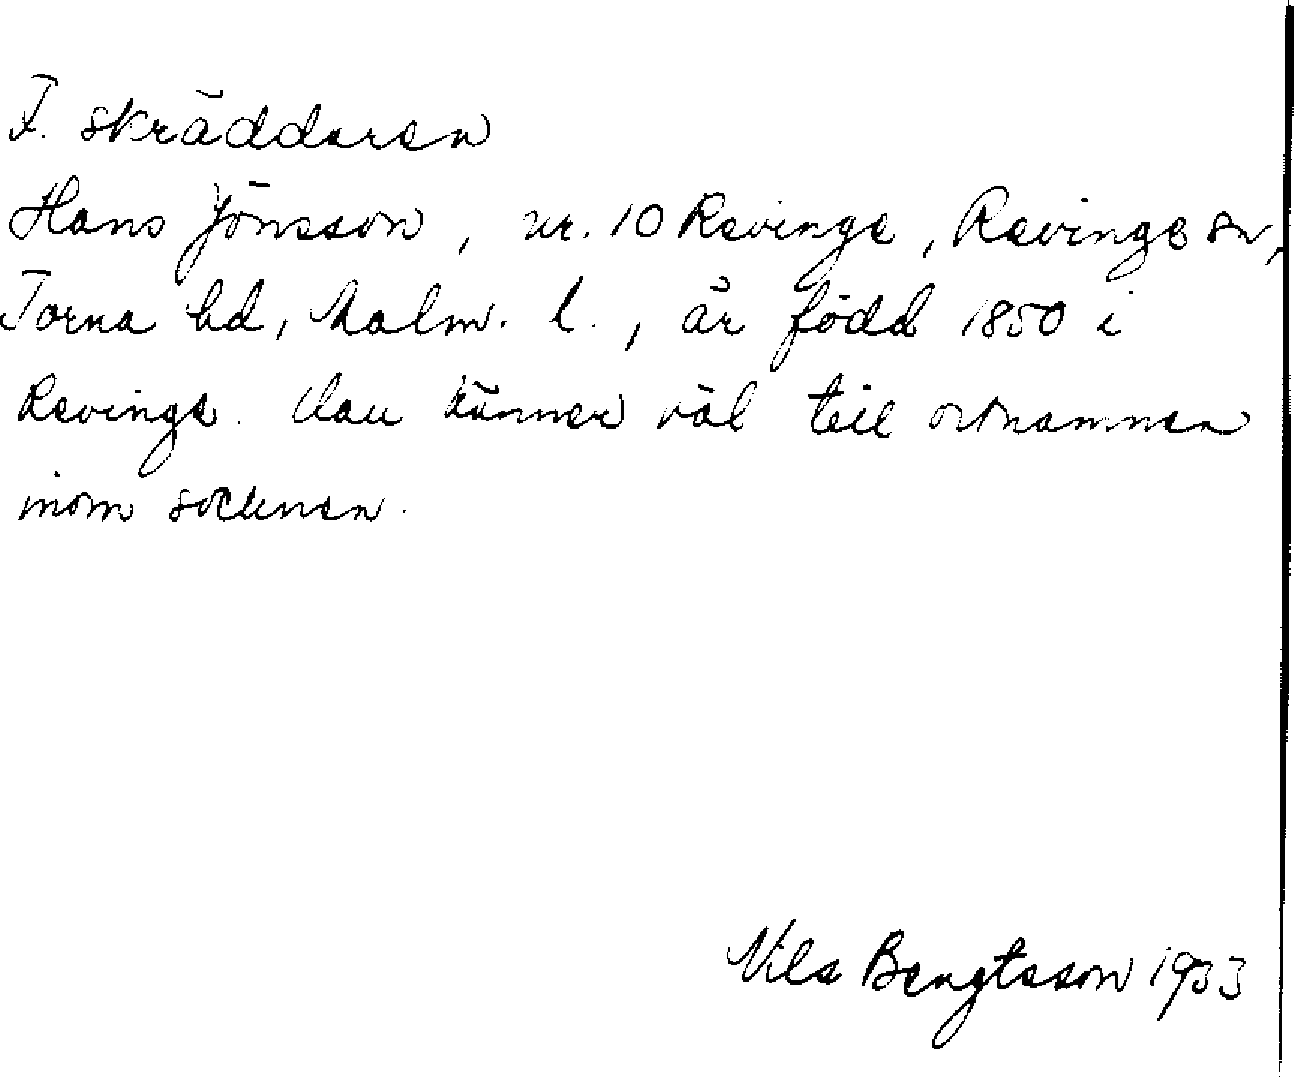 F. skräddaren
Hans Jönsson, nr. 10 Revinge, Revinge sn,
Torna hd, Malm. l., är född 1850 i
Revinge. Han känner väl till ortnamnen
inom socknen.
Nils Bengtsson 1933